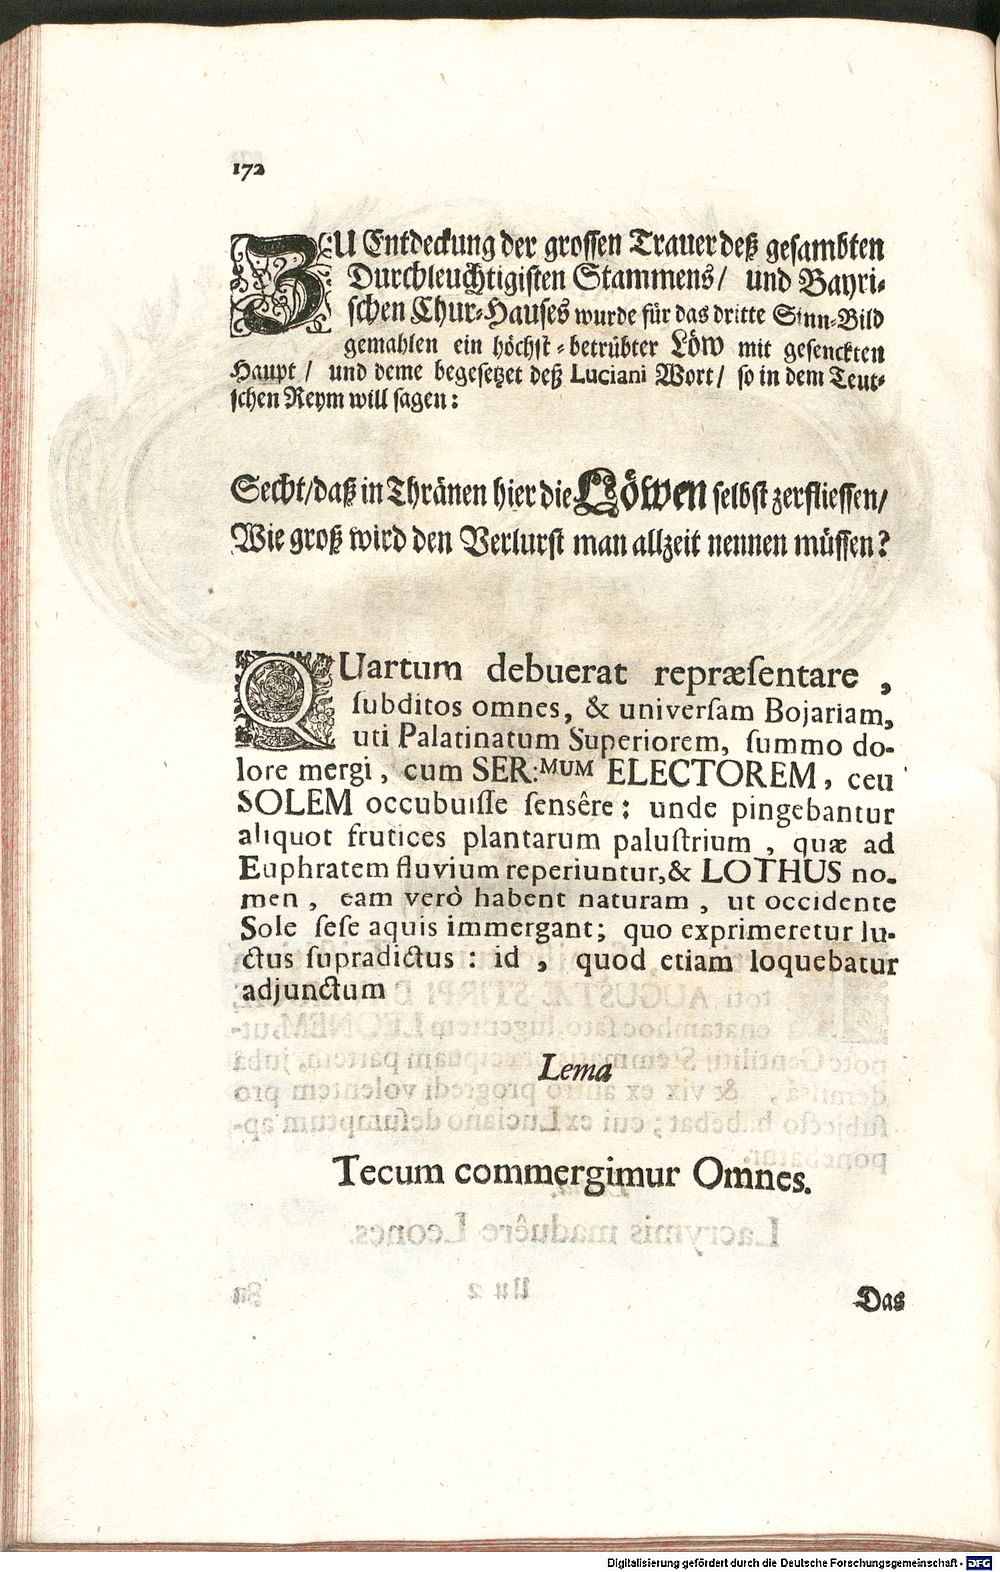 172
ZU Entdeckung der grossen Trauer deß gesambten
Durchleuchtigisten Stammens/ und Bayri-
schen Chur-Hauses wurde für das dritte Sinn-Bild
gemahlen ein höchst-betrübter Löw mit gesenckten
Haupt / und deme begesetzet deß Luciani Wort/ so in dem Teut-
schen Reym will sagen:
Secht/daß in Thränen hier die Löwen selbst zerfliessen/
Wie groß wird den Verlurst man allzeit nennen müssen?
QUartum debuerat repræsentare ,
subditos omnes, & universam Bojariam,
uti Palatinatum Superiorem, summo do-
lore mergi, cum SER:MUM ELECTOREM, ceu
SOLEM occubuisse sensêre: unde pingebantur
aliquot frutices plantarum palustrium , quæ ad
Euphratem fluvium reperiuntur,& LOTHUS no-
men , eam verò habent naturam , ut occidente
Sole sese aquis immergant; quo exprimeretur lu-
ctus supradictus : id , quod etiam loquebatur
adjunctum
Lema
Tecum commergimur Omnes.
Das
Digitalisierung gefördert durch die Deutsche Forschungsgemeinschaft - DFG